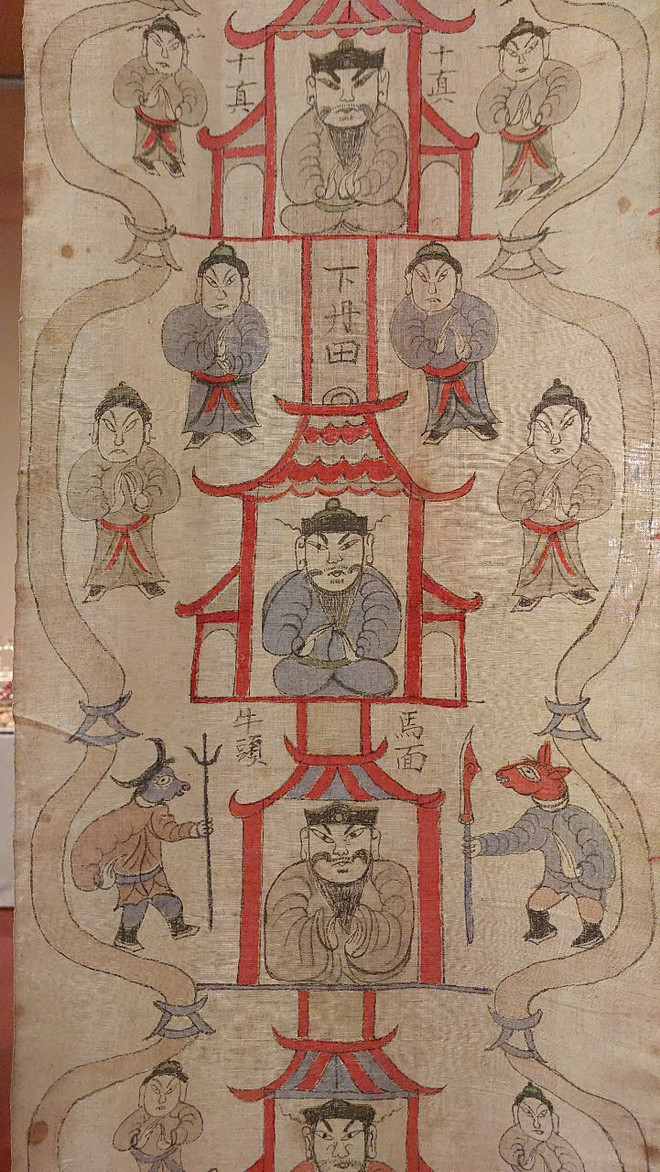 十真
十真
下丹田
牛頭
馬面